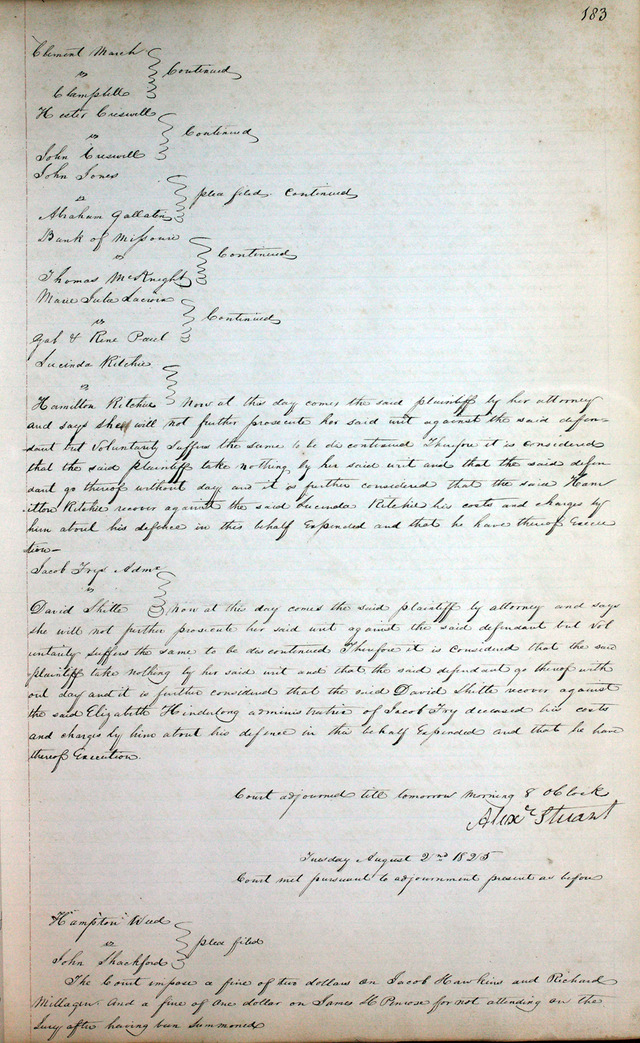 183
Clement March
vs
Campbell
Continued
Hester Creswell
vs
John Creswell
Continued
John Jones
vs
Abraham Gallatin
plea filed Continued
Bank of Missouri
vs
Thomas McKnight
Continued
Marie Julie Lacroix
vs
Gab & Rene Paul
Continued
Lucinda Ritchie
vs
Hamilton Ritchie Now at this day comes the said plaintiff by her attorney
and says she will not further prosecute her said writ against the said defen-
dant but Voluntarily Suffers the same to be discontinued Therefore it is Considered
that the said plaintiff take nothing by her said writ and that the said defen
dant go thereof without day and it is further considered that the said Ham
ilton Ritchie recover against the said Lucinda Ritchie his costs and charges by
him about his defence in this behalf Expended and that he have thereof Execu
tion-
Jacob Frys Admx
vs
David Shitte Now at this day comes the said plaintiff by attorney and says
she will not further prosecute her said writ against the said defendant but Vol
untarily suffers the same to be discontinued Therefore it is Considered that the said
plaintiff take nothing by her said writ and that the said defendant go thereof with
out day and it is further considered that the said David Shitte recover against
the said Elizabeth Hinderlong administratrix of Jacob Fry deceased his costs
and charges by him about his defence in this behalf Expended and that he have
thereof Execution.
Court adjourned till tomorrow Morning 8 OClock
Alexr Stuart
Tuesday August 2nd 1825
Court met pursuant to adjournment present as before
Hampton Weed
vs
John Shackford
plea filed
The Court impose a fine of two dollars on Jacob Hawkins and Richard
Millagen and a fine of one dollar on James H Penrose for not attending on the
Jury after having been summoned